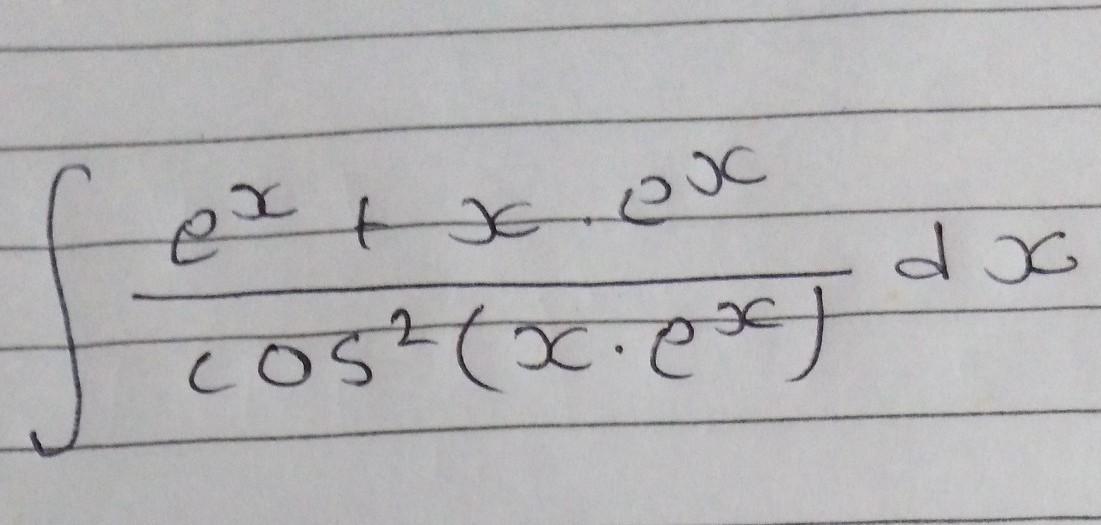 ∫ (e^x + x · e^x) / (cos²(x · e^x)) dx